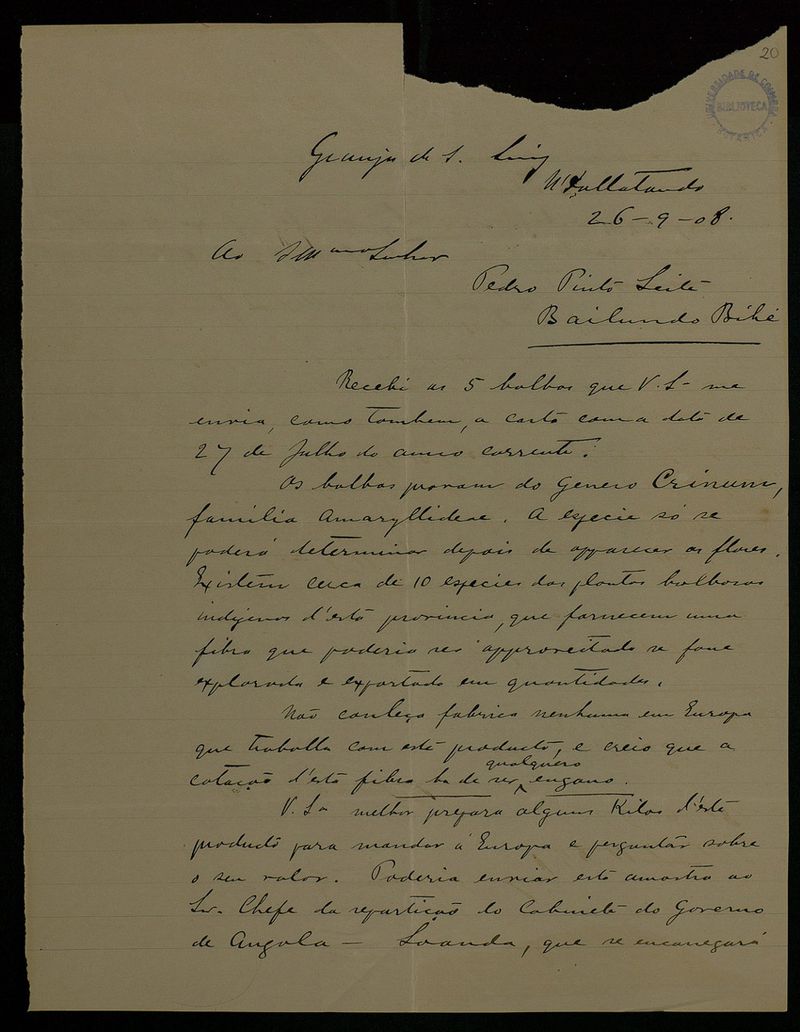 20
UNIVERSIDADE DE COIMBRA
BIBLIOTECA
BOTANICA
Granja de S. Luiz
N'Dallatando
26-9-08.
Ao Senhor
Pedro Pinto Leite
Bailundo Bihé
Recebi os 5 bolbos que V. Sª me
envia, como tambem, a carta com a data de
27 de Julho do anno corrente.
Os bolbos provam do genero Crinum,
familia Amaryllideae. A especie só se
poderá determinar depois de apparecer as flores.
Existem cerca de 10 especies das plantas bulbosas
indigenas d'esta provincia, que fornecem uma
fibra que poderia ser approveitada se fosse
explorada e exportada em quantidades.
Não conheço fabrica nenhuma em Europa
que traballa com este producto, e creio que a
qualquero
cotação d'esta fibra ha de ser engano.
V. Sª melhor prepara alguns Kilos d'este
producto para mandar á Europa e perguntar sobre
o seu valor. Poderia enviar esta amostra ao
Snr. Chefe da repartição do Cabinete do Governo
de Angola — Loanda, que se encarregará